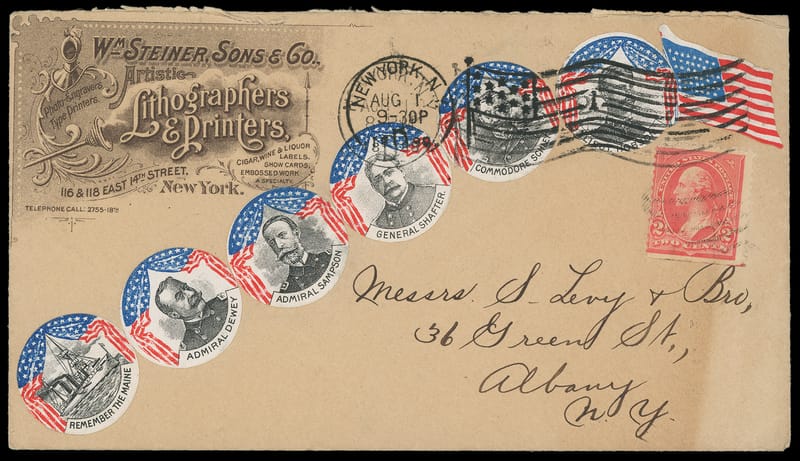 WM STEINER, SONS & CO.,
Artistic
Lithographers
& Printers,
Photo-Engravers
Type Printers.
CIGAR, WINE & LIQUOR
LABELS.
SHOW CARDS,
EMBOSSED WORK
A SPECIALTY.
116 & 118 EAST 14TH STREET,
New York.
TELEPHONE CALL: 2755-18TH
NEW YORK, N.
AUG 1
9-30P
REMEMBER THE MAINE
ADMIRAL DEWEY
ADMIRAL SAMPSON
GENERAL SHAFTER.
COMMODORE
2 2
TWO CENTS
Messrs. S. Levy & Bro,
36 Green St.,
Albany
N. Y.